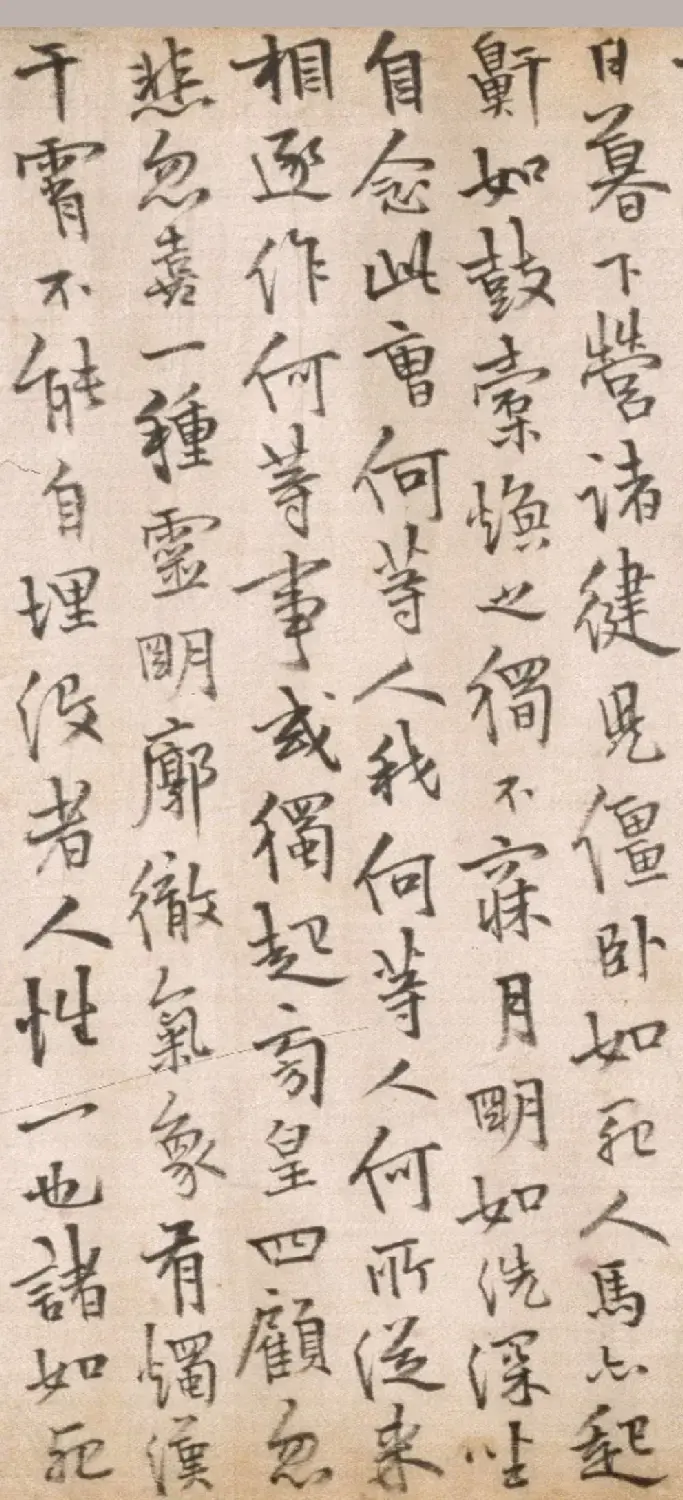 日暮下營諸健兒僵卧如死人馬亦起
鼾如鼓橐煥之獨不寐月明如洗深坐
自念此曹何等人我何等人何所從來
相逐作何等事或獨起旁皇四顧忽
悲忽喜一種靈明廓徹氣象有燭漢
干霄不能自埋沒者人性一也諸如死